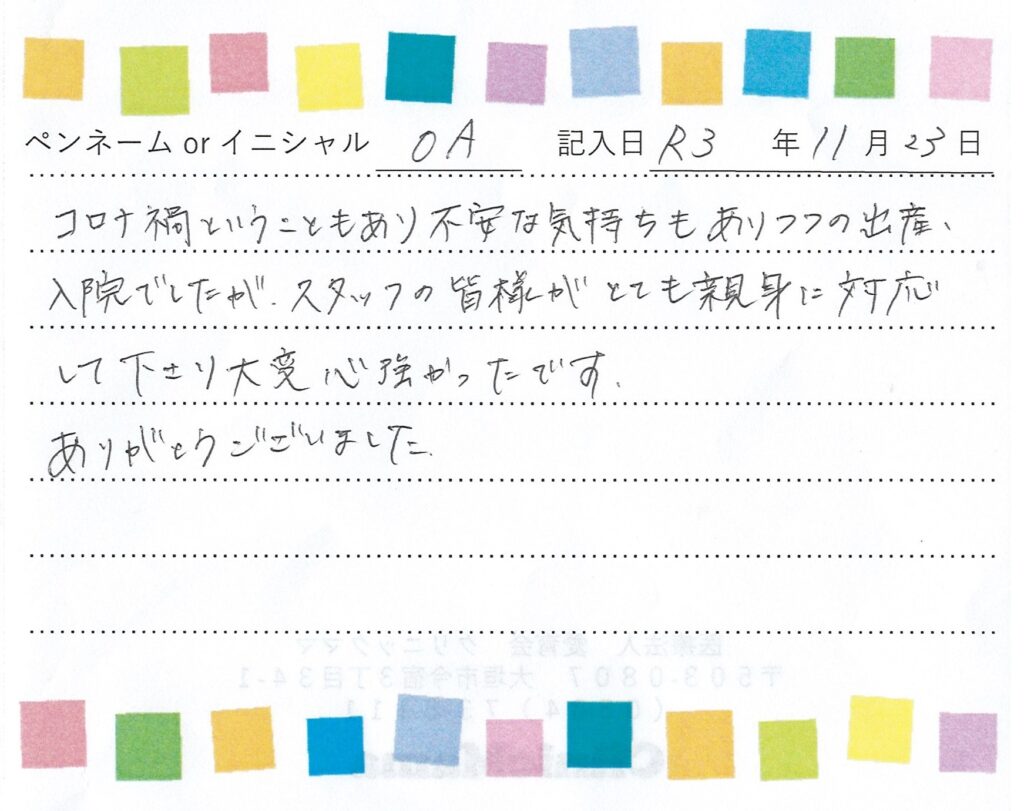 ペンネーム or イニシャル OA 記入日 R3 年 11 月 23 日
コロナ禍ということもあり不安な気持ちもありつつの出産、
入院でしたが、スタッフの皆様がとても親身に対応
して下さり大変心強かったです。
ありがとうございました。
医療法人 愛育会 クリニックママ
〒503-0807 大垣市今宿3丁目34-1